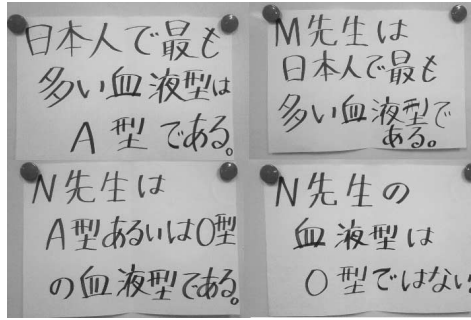 日本人で最も
多い血液型は
A型である。
M先生は
日本人で最も
多い血液型で
ある。
N先生は
A型あるいはO型
の血液型である。
N先生の
血液型は
O型ではない